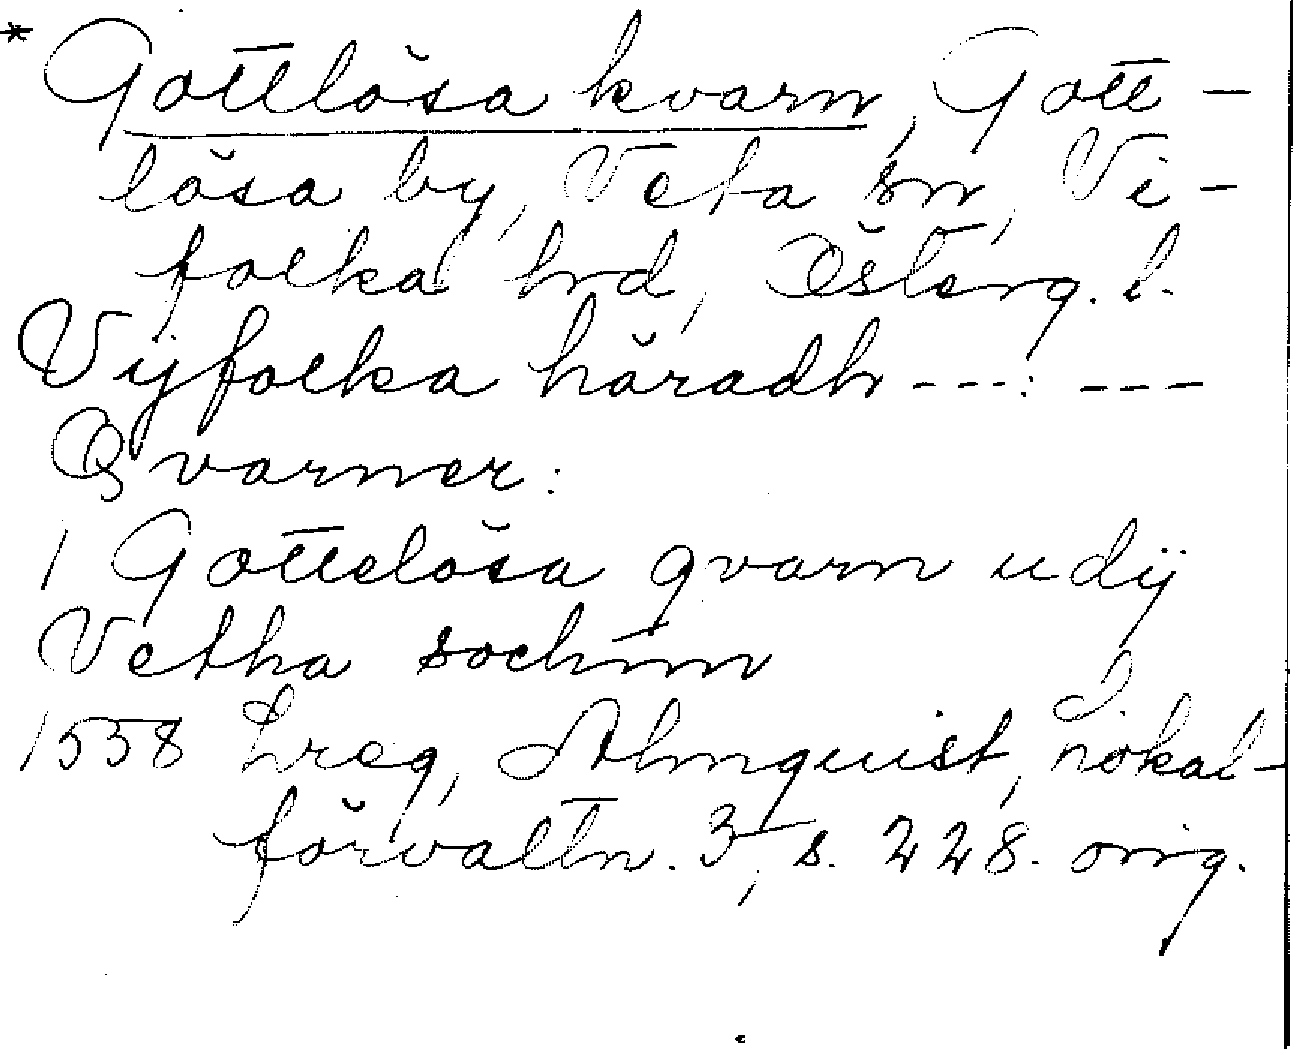 * Gottlösa kvarn, Gott-
lösa by, Veta sn, Vi-
folka hrd, Österg. l.
Vijfolka häradh ---: ---
Qvarner:
1 Gottelösa qvarn udij
Vetha sochnn
1558 Lreg, Almquist, Lokal-
förvaltn. 3, s. 228. orig.